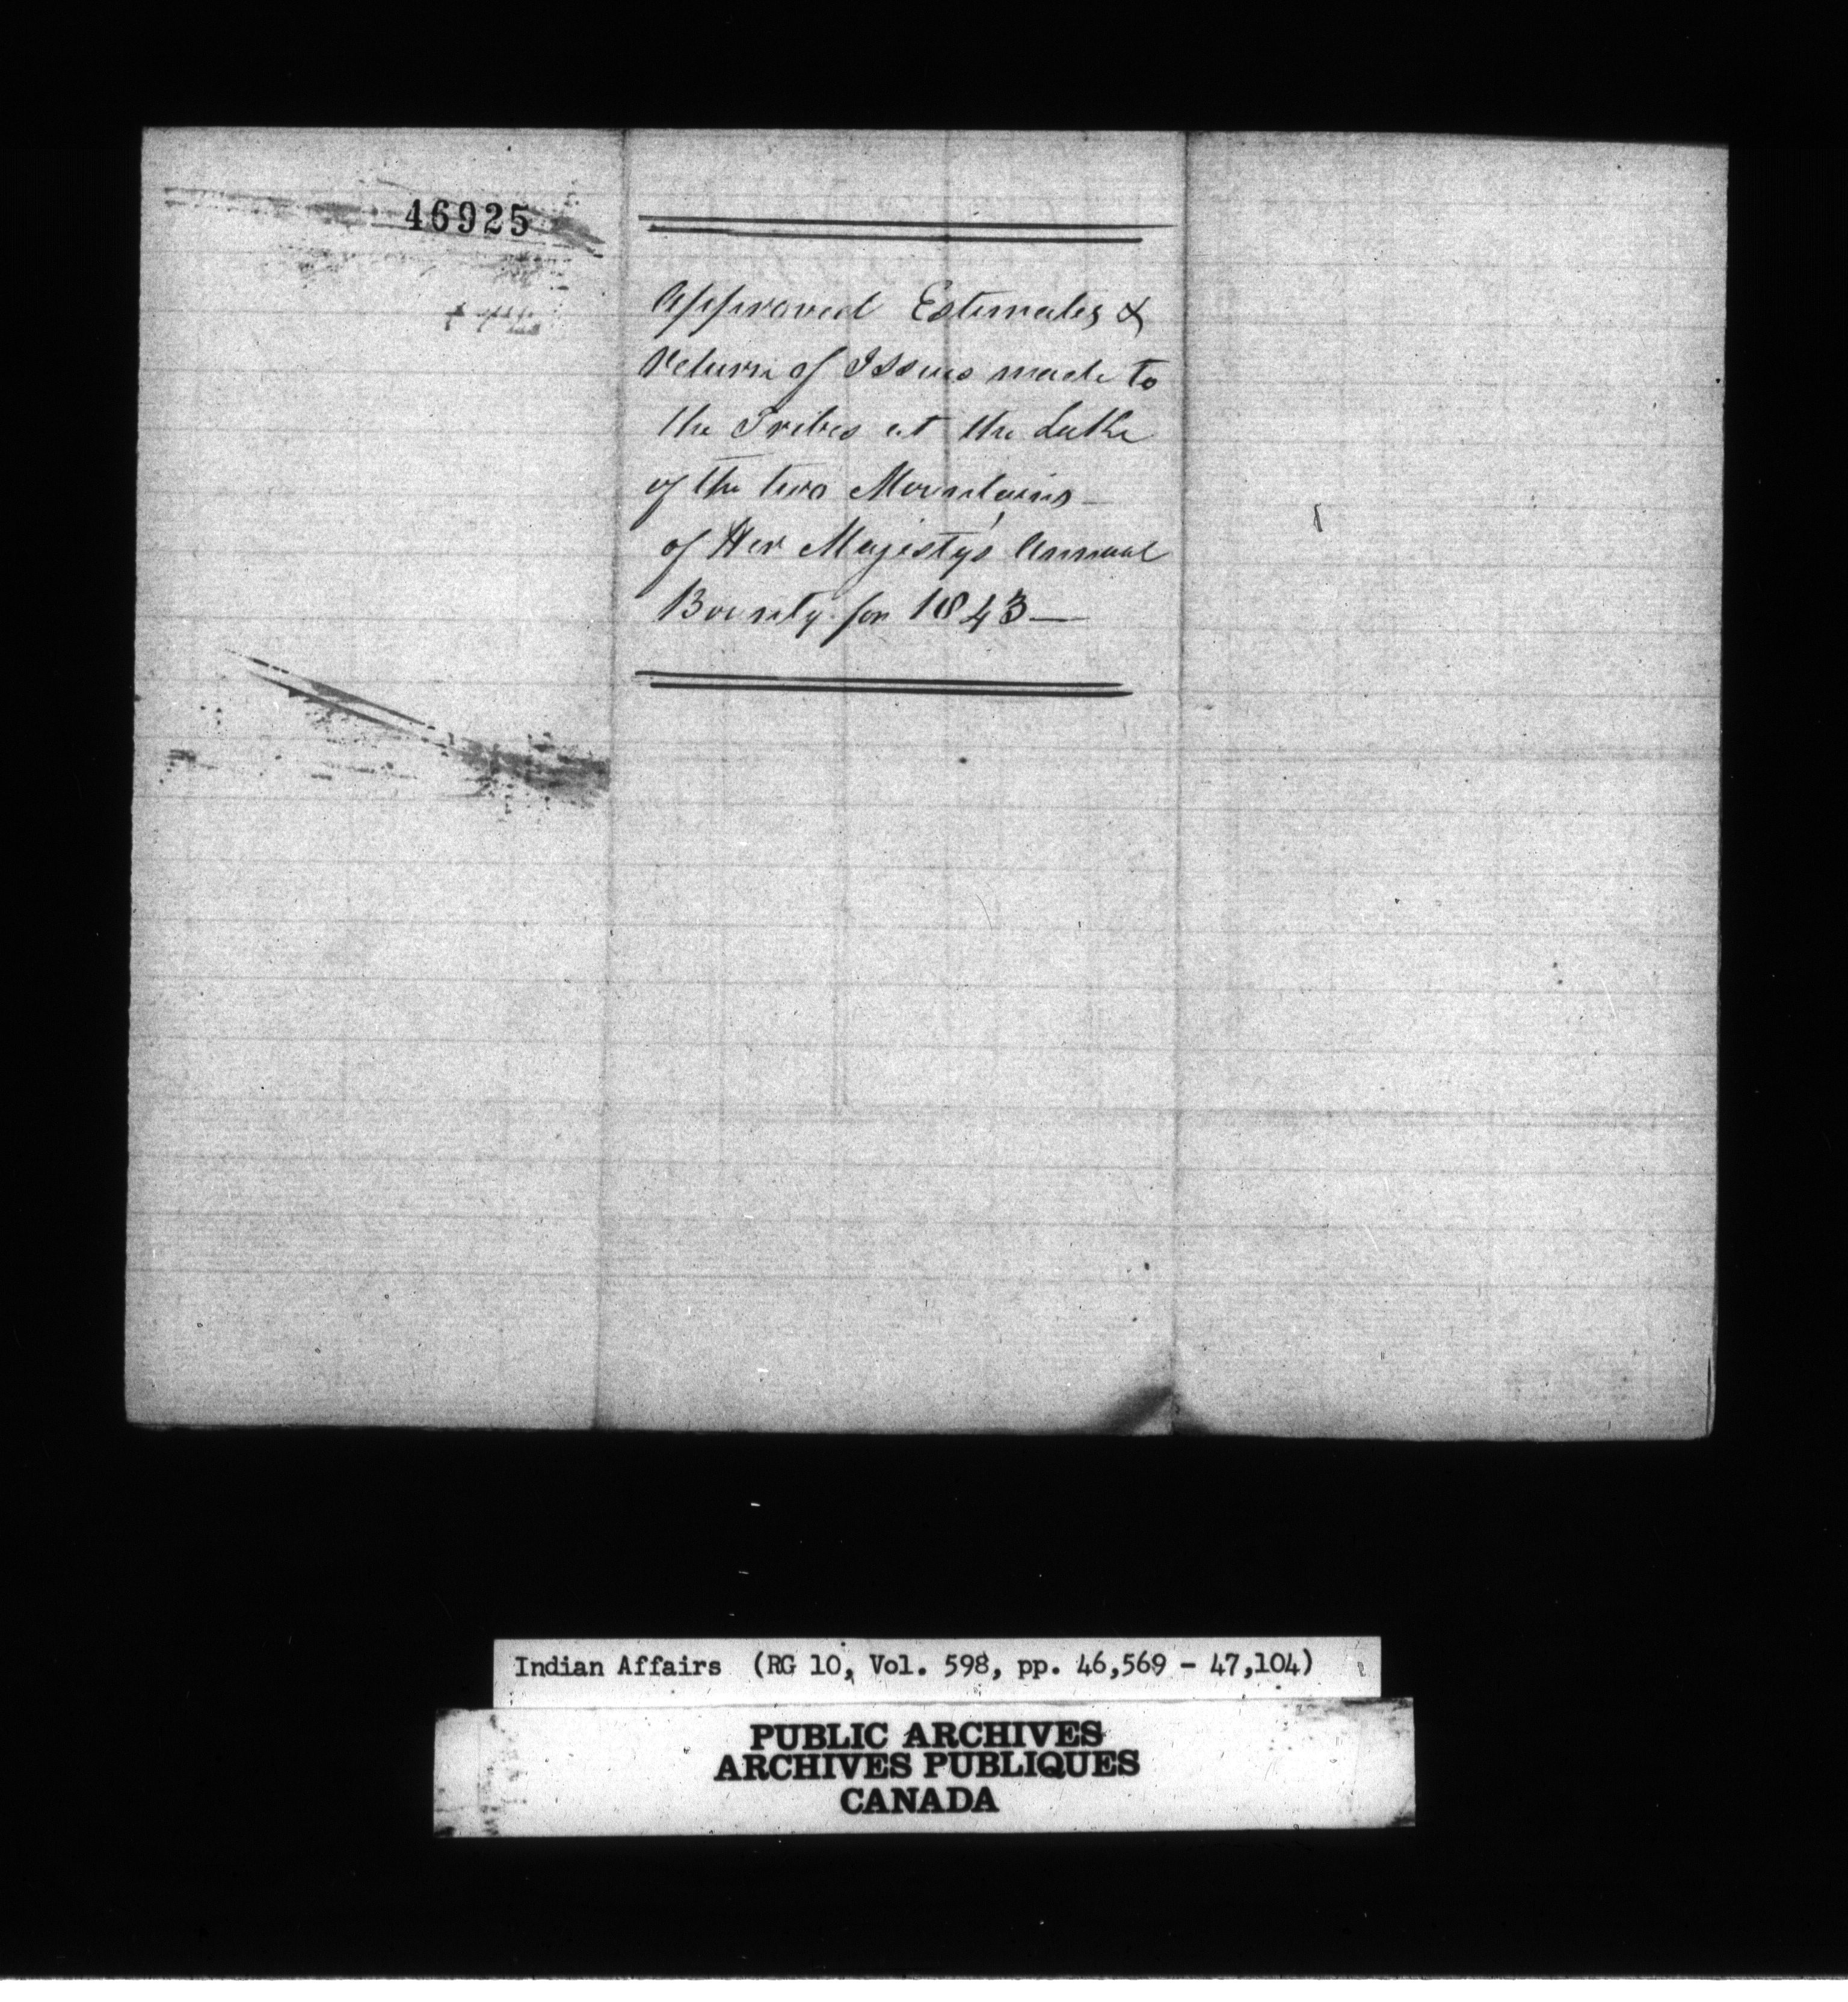 46925
Approved Estimates &
Return of Issues made to
the Tribes at the Lake
of the two Mountains –
of Her Majesty's Annual
Bounty for 1843 —
Indian Affairs (RG 10, Vol. 598, pp. 46,569 - 47,104)
PUBLIC ARCHIVES
ARCHIVES PUBLIQUES
CANADA